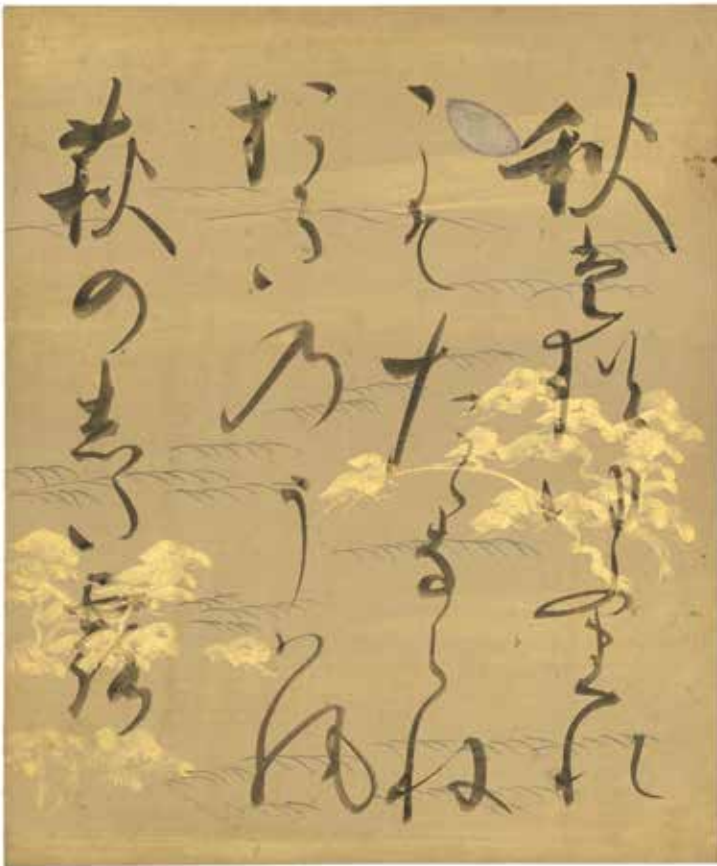 秋は猶夕まくれ
こそたゝならね
おきのうは風
萩のした露